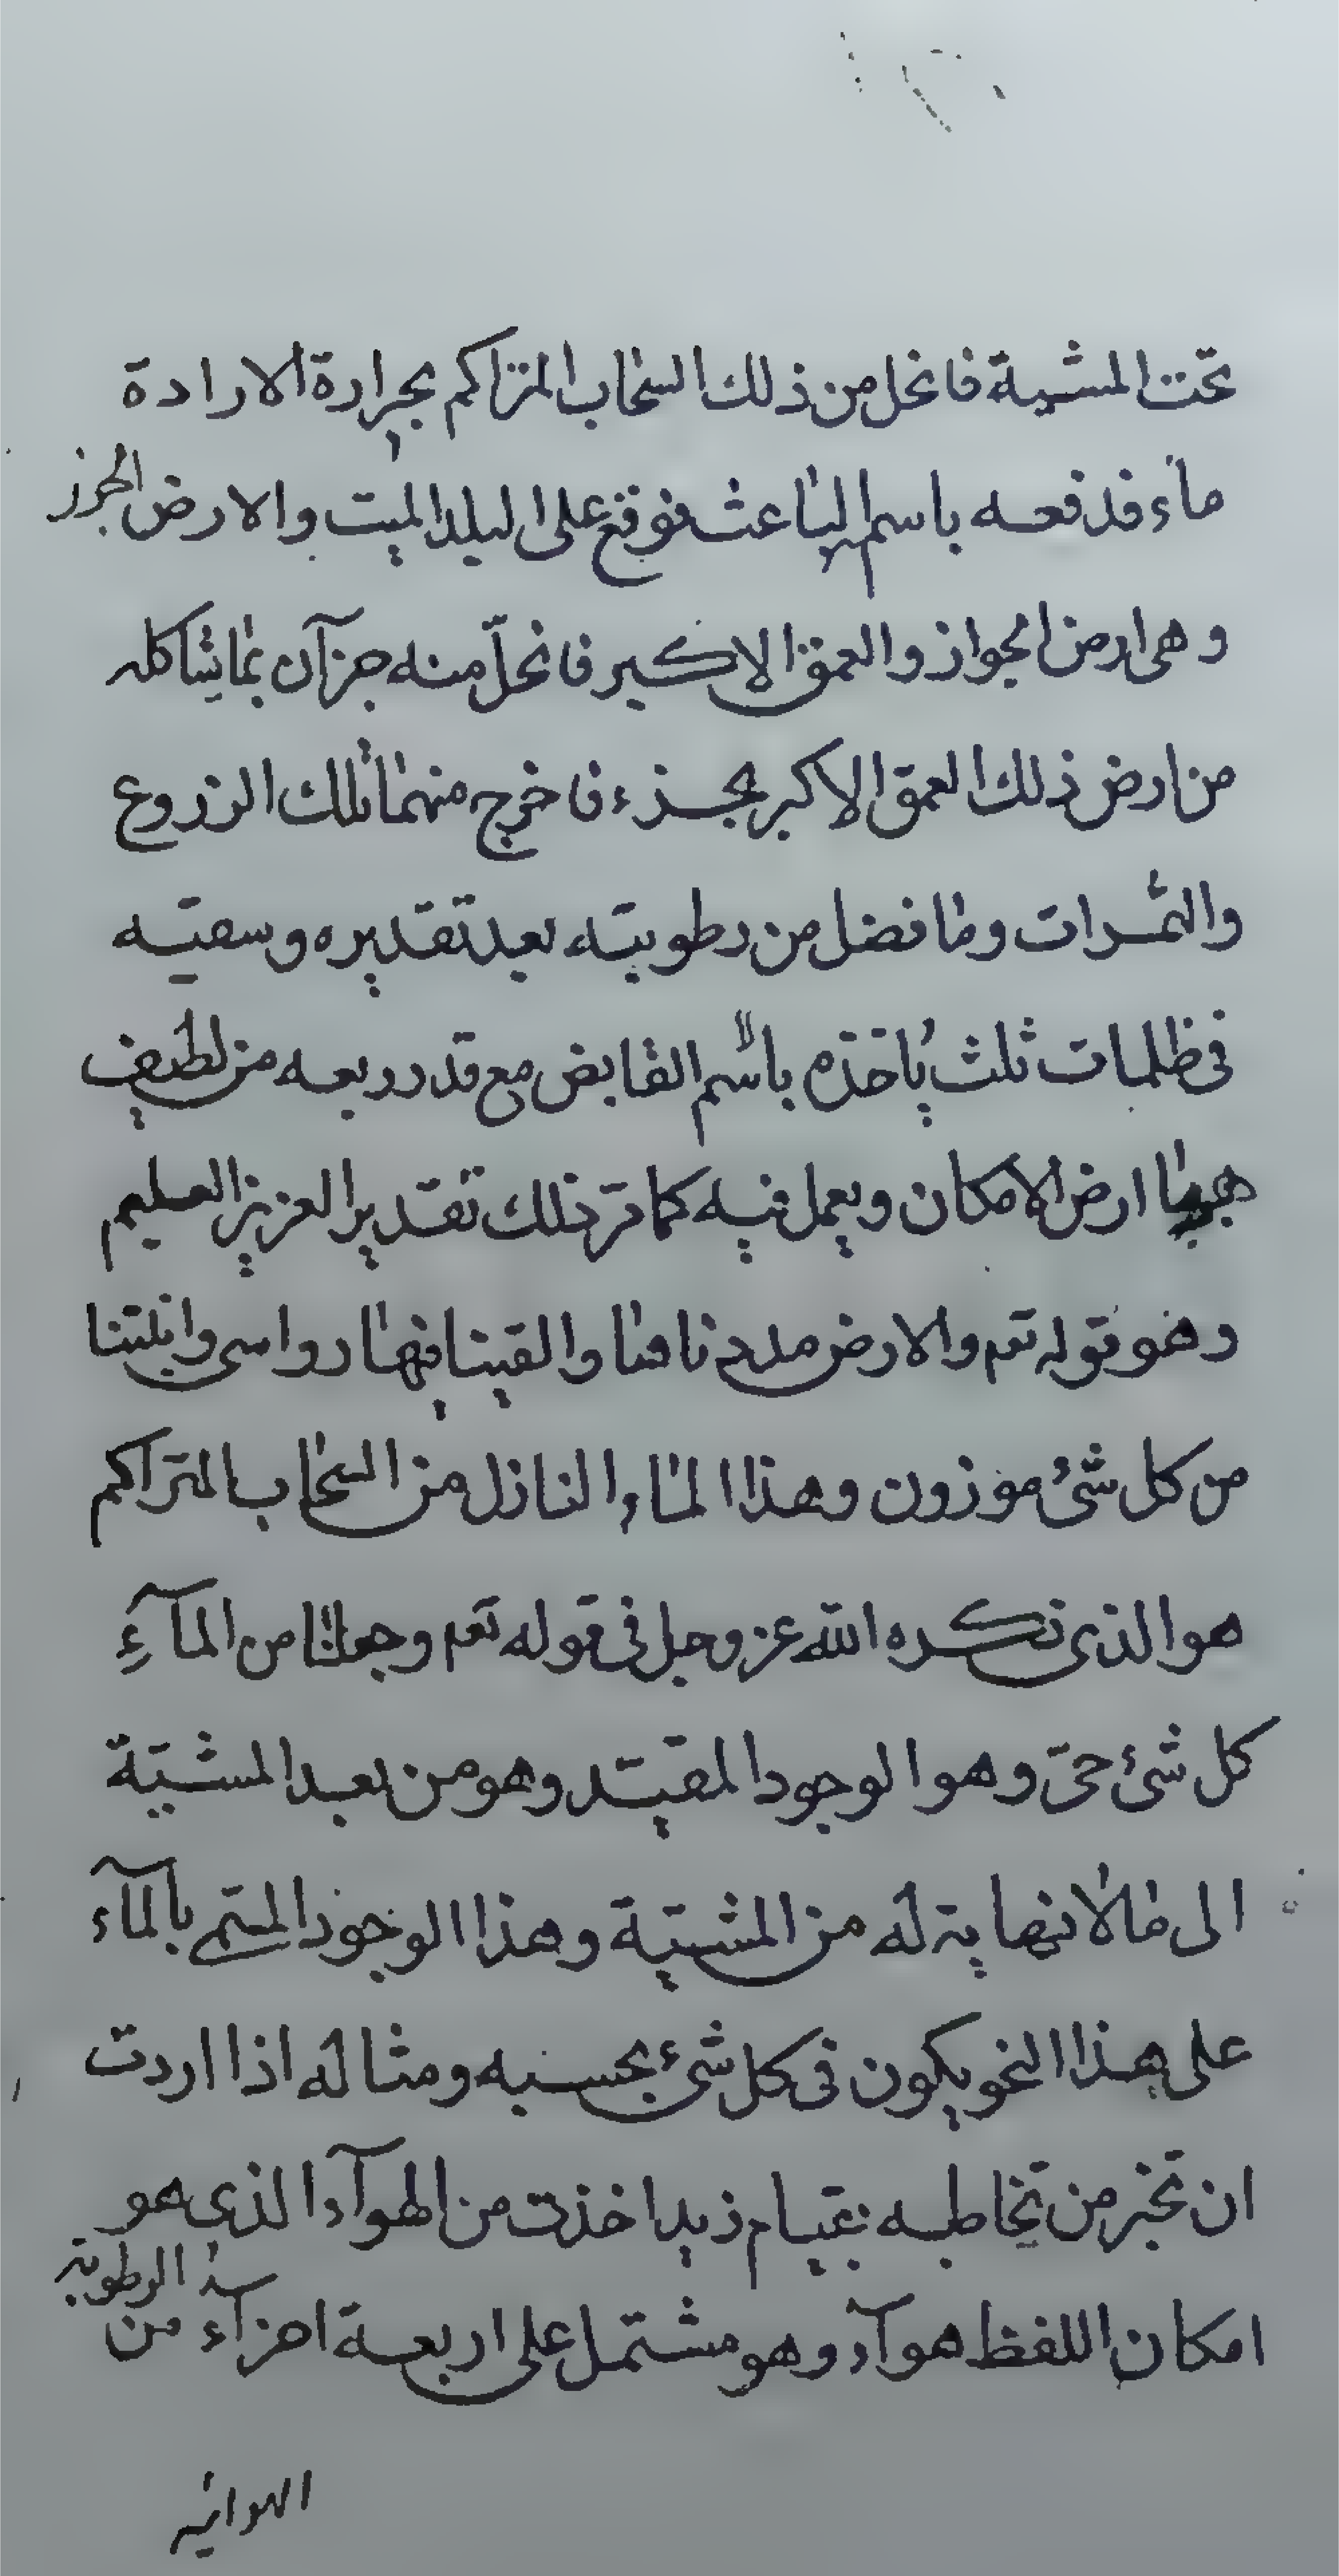 تحت المشية فانحل من ذلك السحاب المتراكم بحرارة الارادة
ماء فدفعه باسم الباعث فوقع على البلد الميت والارض الجرز
وهى ارض الجواز والعمق الاكبر فانحلّ منه جزآن بما يشاكله
من ارض ذلك العمق الاكبر بجزء فاخرج منهما تلك الزروع
والثمرات وما فضل من رطوبته بعد تقديره وسقيه
فى ظلمات ثلث يأخذه باسم القابض مع قدر ربعه من لطيف
هباء ارض الامكان ويعمل فيه كما مر ذلك تقدير العزيز العليم
وهو قوله تعم والارض مددناها والقينا فيها رواسى وانبتنا
من كل شئ موزون وهذا الماء النازل من السحاب المتراكم
هو الذى ذكره الله عز وجل فى قوله تعم وجعلنا من المآءِ
كل شئ حىّ وهو الوجود المقيّد وهو من بعد المشيّة
الى ما لا نهاية له من المشيّة وهذا الوجود المسمى بالمآء
على هذا النحو يكون فى كل شئ بحسبه ومثاله اذا اردت
ان تخبر من تخاطبه بقيام زيد اخذت من الهوآء الذى هو
امكان اللفظ هوآء وهو مشتمل على اربعة اجزآء من الرطوبة
الهوائية